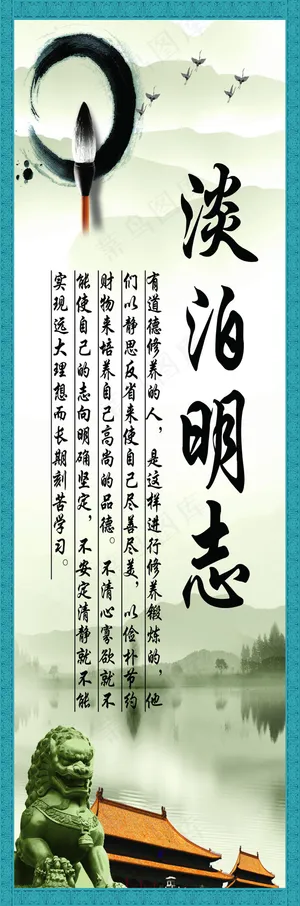 淡泊明志
有道德修养的人，是这样进行修养锻炼的，他
们以静思反省来使自己尽善尽美，以俭朴节约
财物来培养自己高尚的品德。不清心寡欲就不
能使自己的志向明确坚定，不安定清静就不能
实现远大理想而长期刻苦学习。